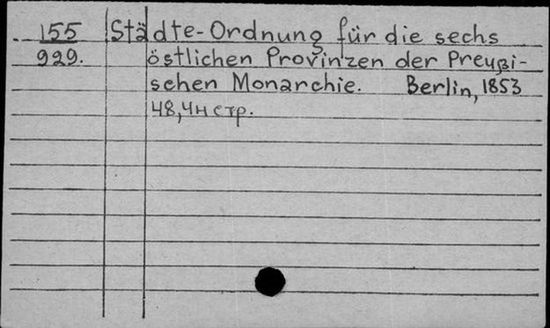 155 Städte-Ordnung für die sechs
929. östlichen Provinzen der Preußi-
schen Monarchie. Berlin, 1853
48, 4н стр.